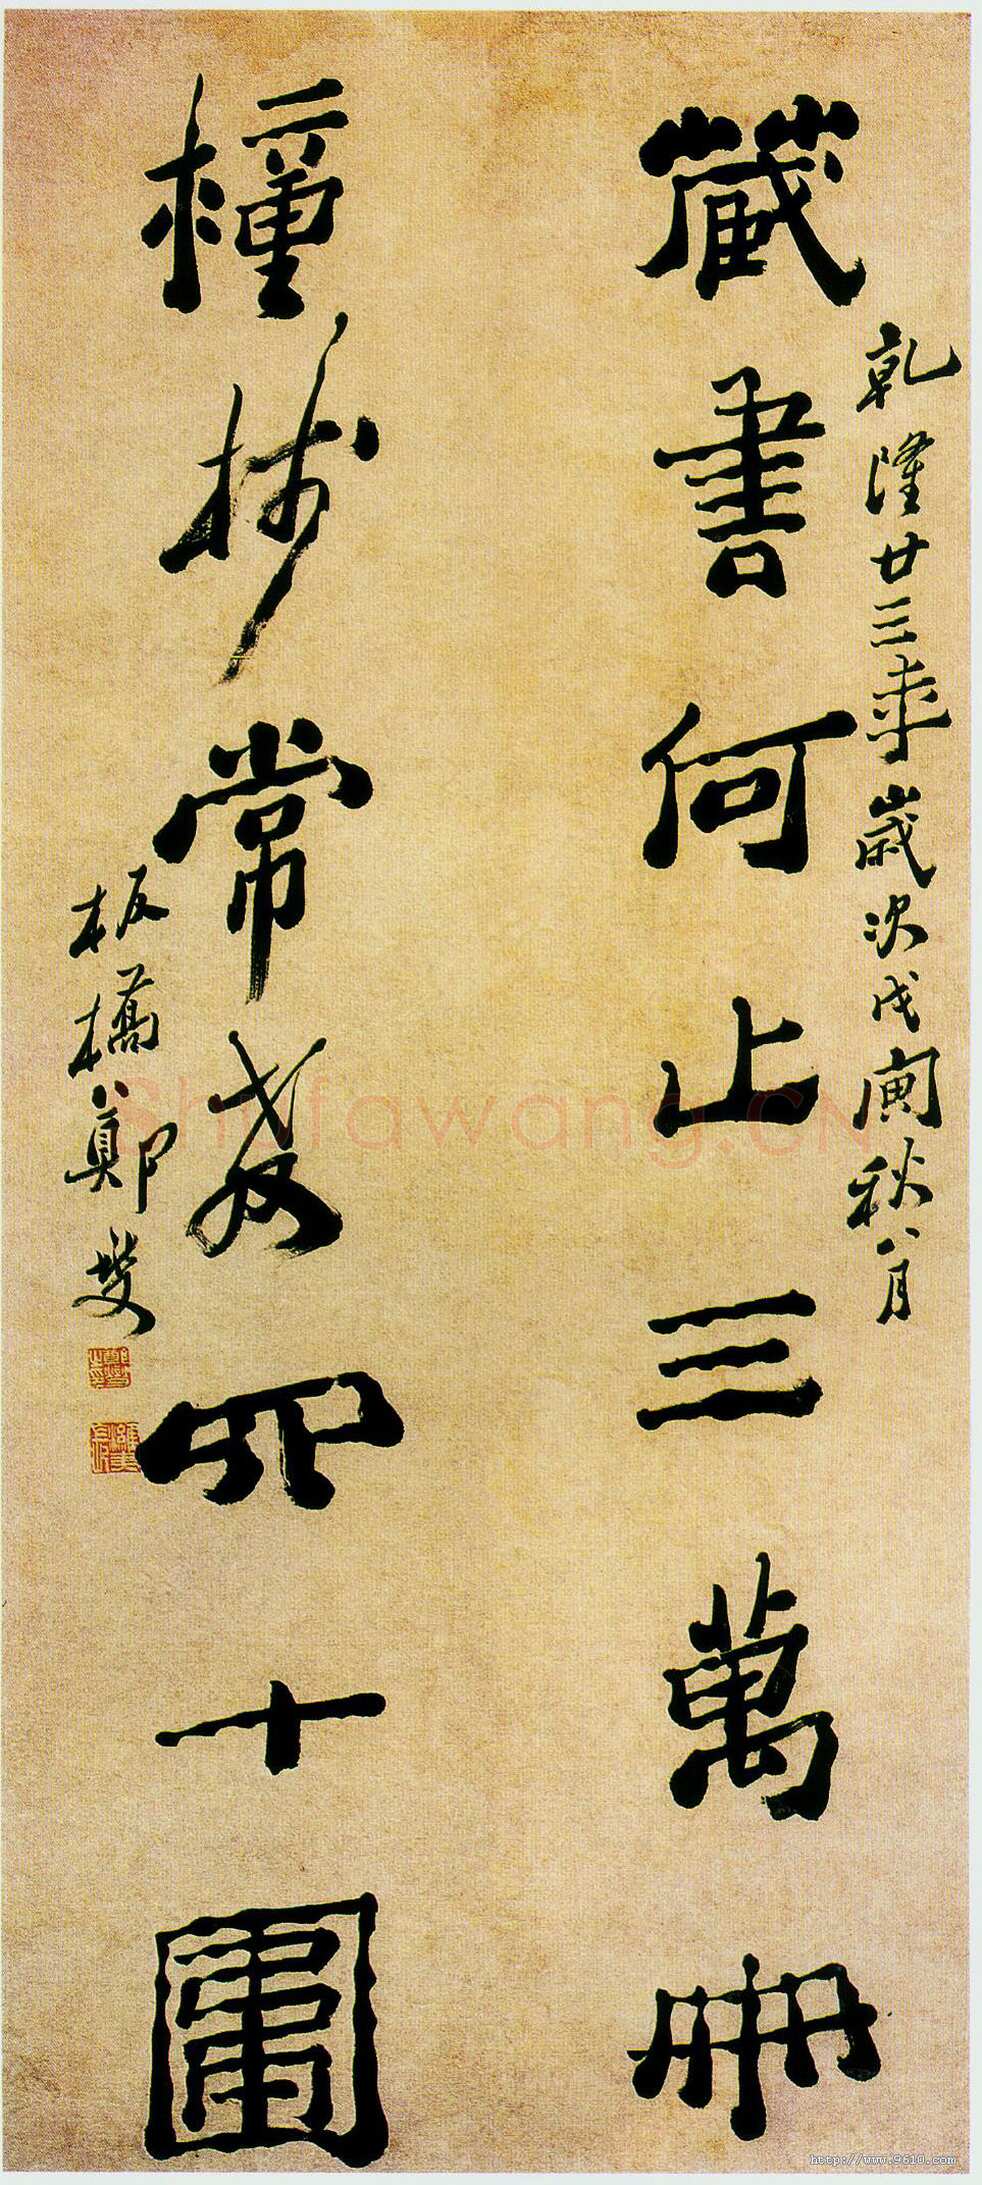 乾隆廿三年歲次戊寅秋八月
藏書何止三萬冊
種樹常教四十圍
板橋鄭燮
鄭燮之印
Shufawang.CN
http://www.9610.com